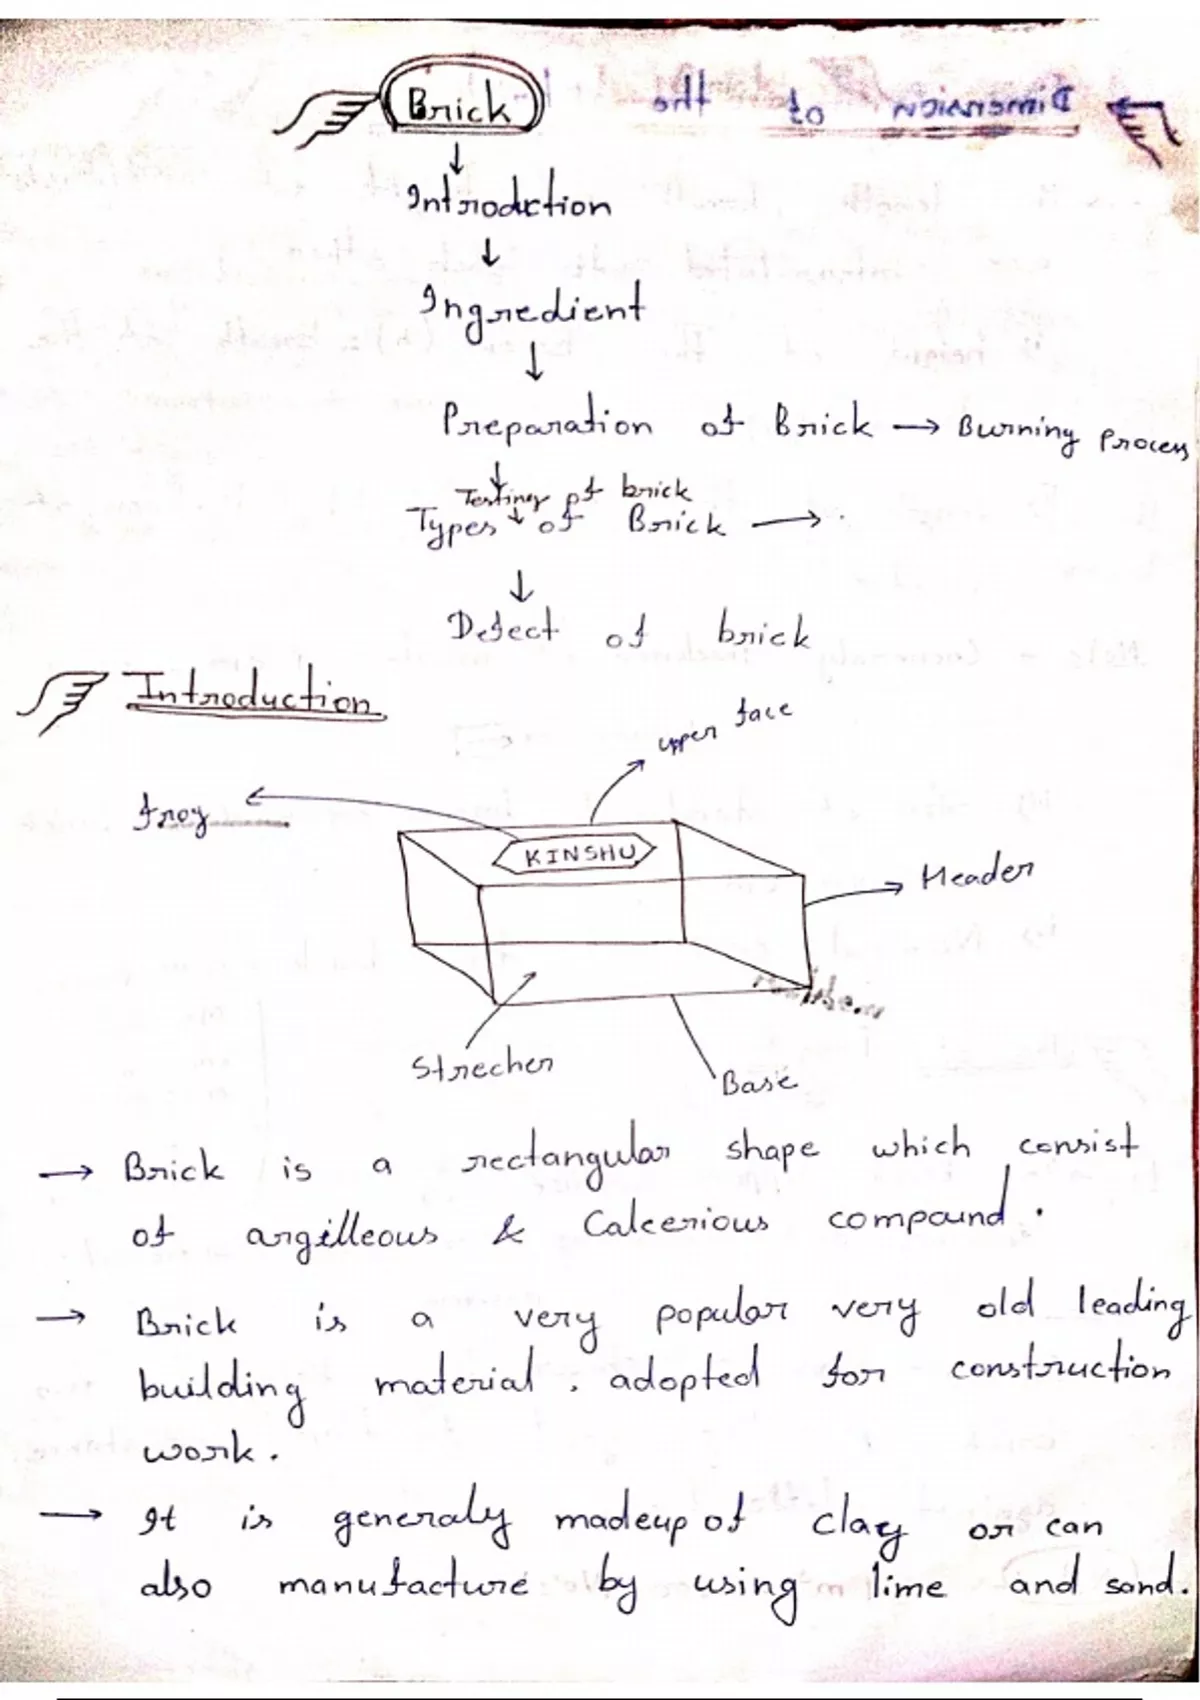 Brick
Introdction
Ingredient
Preparation of Brick → Burning Process
Testing of brick
Types of Brick →
Defect of brick
Introduction
upper face
frog
KINSHU
Header
Strecher
Base
→ Brick is a rectangular shape which consist
of argilleous & Calcerious compound.
→ Brick is a very popular very old leading
building material, adopted for construction
work.
→ It is generaly madeup of clay or can
also manufacture by using lime and sand.